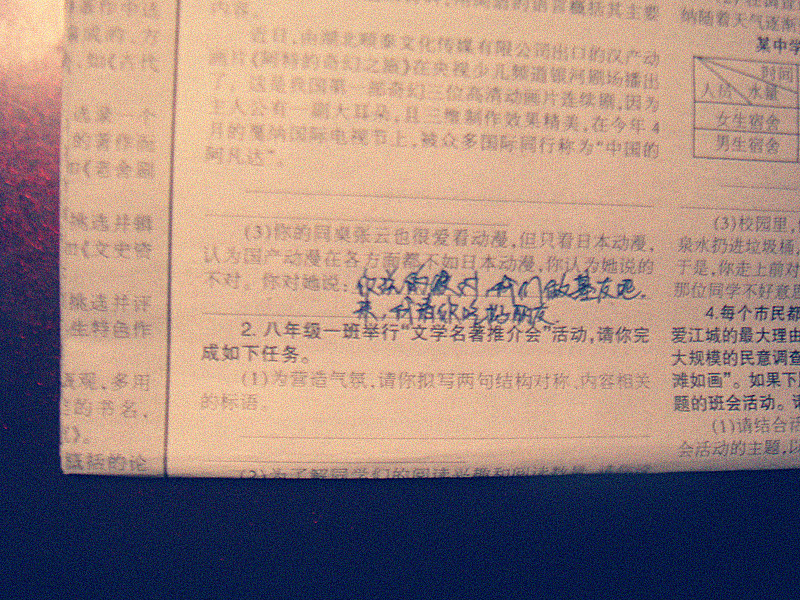 著作中选
如《古代
选录一个
的著作而
如《老舍剧
挑选并辑
如《文史资
挑选并评
生特色作
概观,多用
的书名,
既括的论
内容。
近日,由湖北
文化传媒有限公司出口的汉产动
画片《阿特的奇幻之旅》在央视少儿频道银河剧场播出
了。这是我国第一部奇幻三位高清动画片连续剧,因为
主人公有一副大耳朵,且三维制作效果精美,在今年4
月的戛纳国际电视节上,被众多国际同行称为“中国的
阿凡达”。
(3)你的同桌张云也很爱看动漫,但只看日本动漫,
认为国产动漫在各方面都不如日本动漫,你认为她说的
不对。你对她说:
我们做基友吧.
来,
好朋友
2.八年级一班举行“文学名著推介会”活动,请你完
成如下任务。
(1)为营造气氛,请你拟写两句结构对称、内容相关
的标语。
(2)为了解同学们的阅读兴趣和阅读数量,请你
纳随着天气逐渐
某中学
时间
人员 水量
女生宿舍
男生宿舍
(3)校园里,
泉水扔进垃圾桶,
于是,你走上前对
那位同学不好意思
4.每个市民都
爱江城的最大理由
大规模的民意调查
滩如画”。如果下
题的班会活动。请
(1)请结合活
会活动的主题,以